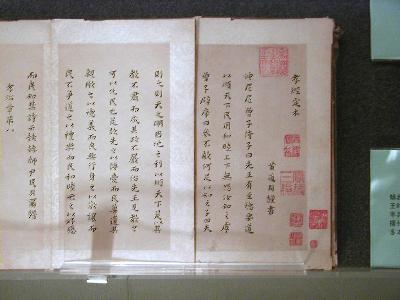 孝經定本
黃道周謹書
仲尼居曾子侍子曰先王有至德要道
以順天下民用和睦上下無怨汝知之乎
曾子辟席曰參不敏何足以知之子曰夫
則天之明因地之利以順天下是以其
教不肅而成其政不嚴而治先王見教之
可以化民也是故先之以博愛而民莫遺其
親陳之以德義而民興行先之以敬讓而
民不爭道之以禮樂而民和睦示之以好惡
而民知禁詩云赫赫師尹民具爾瞻
孝治章第八